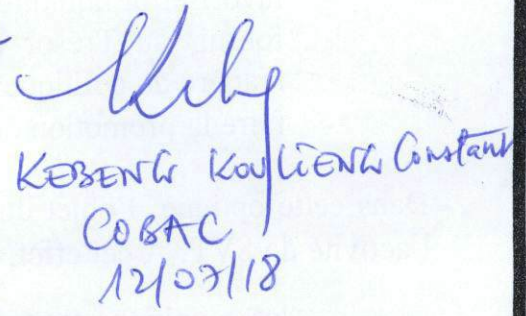 KEBENG KOULIENG Constant
COBAC
12/07/18